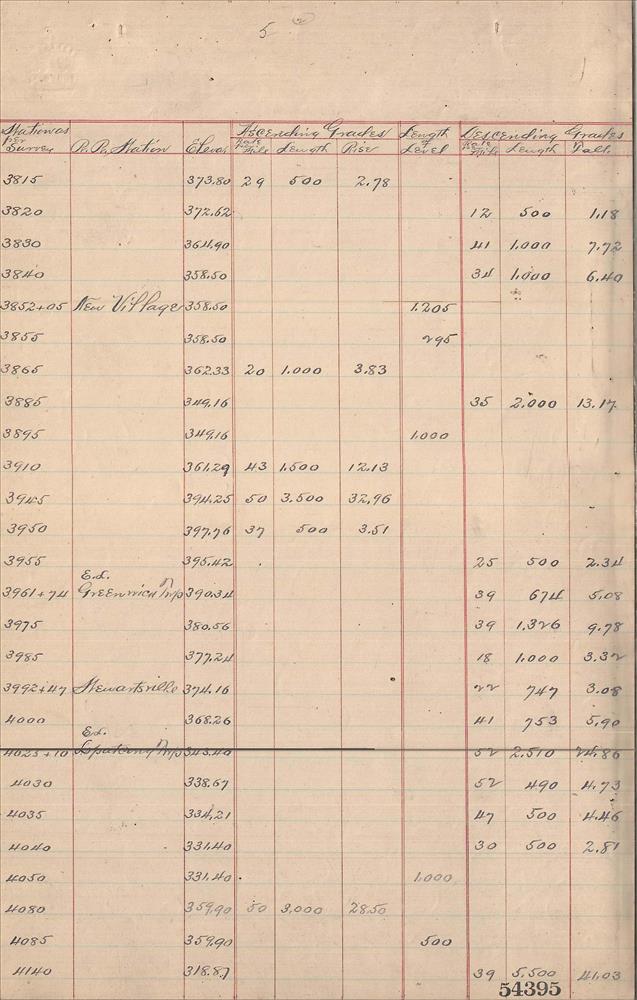 5
Stations per Survey R. R. Station Elevat Ascending Grades Length of Level Descending Grades
Rate Mile Length Rise Rate Mile Length Fall
3815 373.80 29 500 2.78
3820 372.62 12 500 1.18
3830 364.90 41 1.000 7.72
3840 358.50 34 1.000 6.40
3852+05 New Village 358.50 1.205
3855 358.50 295
3865 362.33 20 1.000 3.83
3885 349.16 35 2.000 13.17
3895 349.16 1.000
3910 361.29 43 1.500 12.13
3945 394.25 50 3.500 32.96
3950 397.76 37 500 3.51
3955 395.42 25 500 2.34
Ed.
3961+74 Greenwich Twp 390.34 39 674 5.08
3975 380.56 39 1.326 9.78
3985 377.24 18 1.000 3.32
3992+47 Stewartsville 374.16 22 747 3.08
4000 368.26 41 753 5.90
Ed.
4025+10 Lopatcong Twp 343.40 52 2.510 24.86
4030 338.67 52 490 4.73
4035 334.21 47 500 4.46
4040 331.40 30 500 2.81
4050 331.40 1.000
4080 359.90 50 3.000 28.50
4085 359.90 500
4140 318.87 39 5.500 41.03
54395